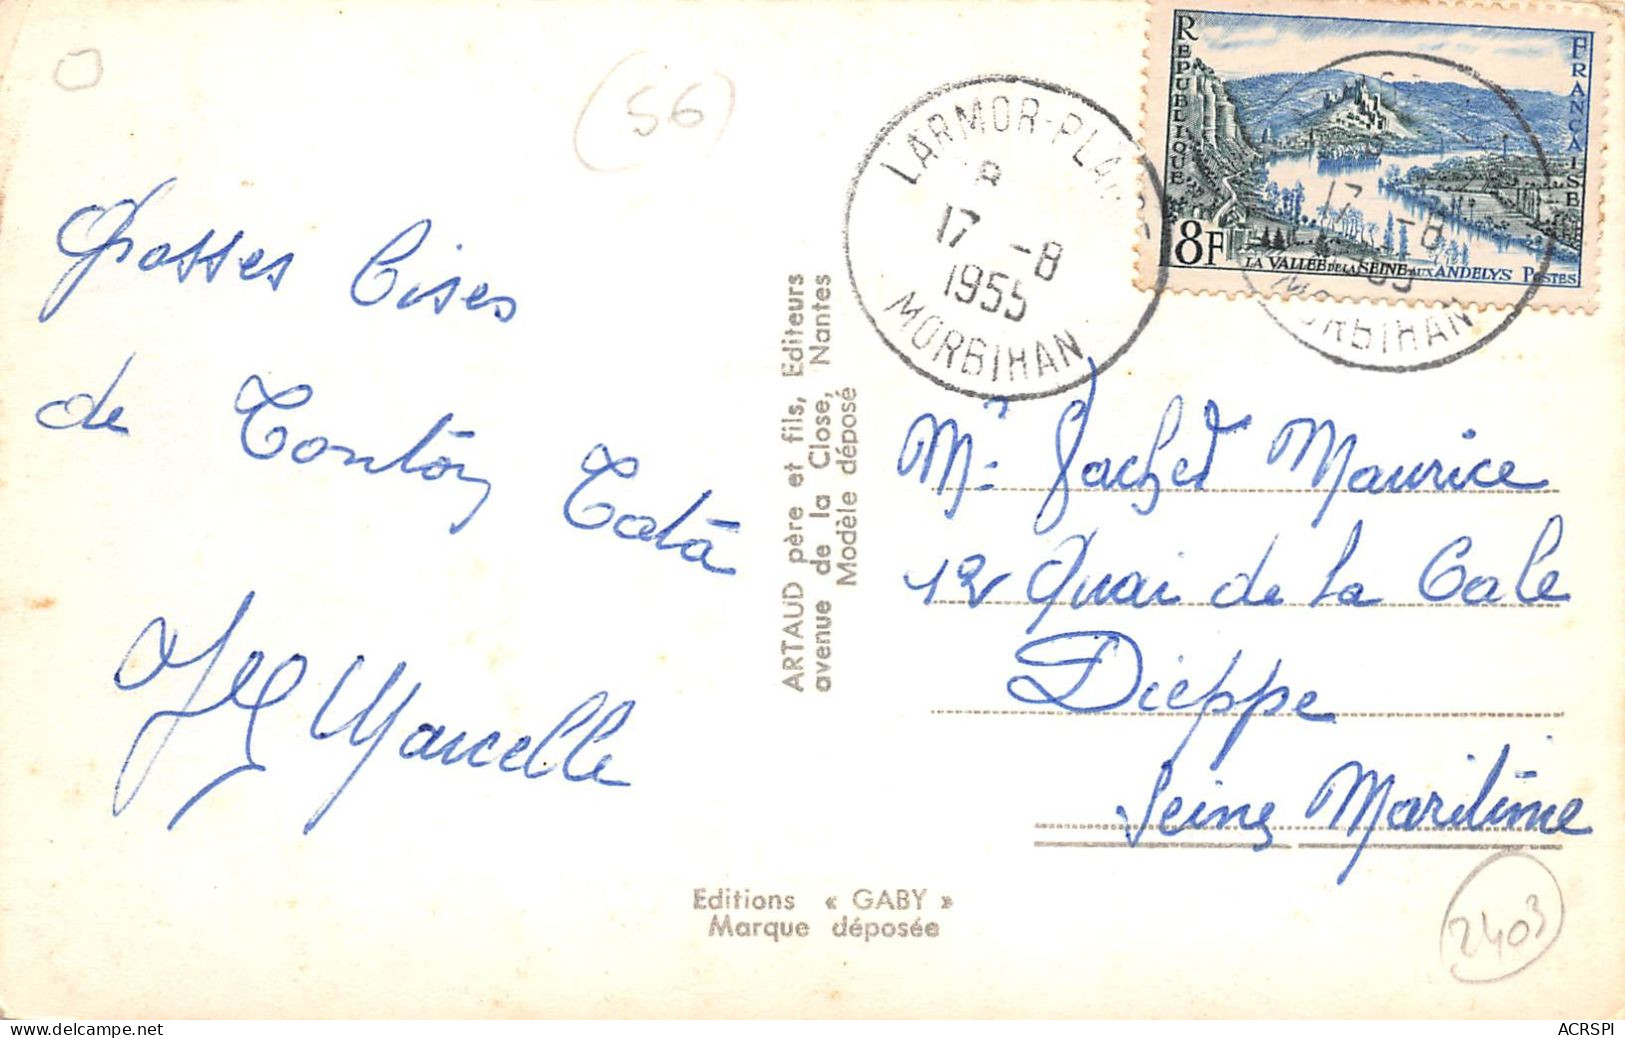 (56)
Grosses Bises
de Tonton Tata
Marcelle
ARTAUD père et fils, Editeurs
avenue de la Close, Nantes
Modèle déposé
Editions « GABY »
Marque déposée
LARMOR-PLAGE
17 -8
1955
MORBIHAN
REPUBLIQUE FRANÇAISE
8F
LA VALLÉE DE LA SEINE AUX ANDELYS POSTES
17 -8
MORBIHAN
Mr Gachet Maurice
12 Quai de la Cale
Dieppe
Seine Maritime
2403
ACRSPI